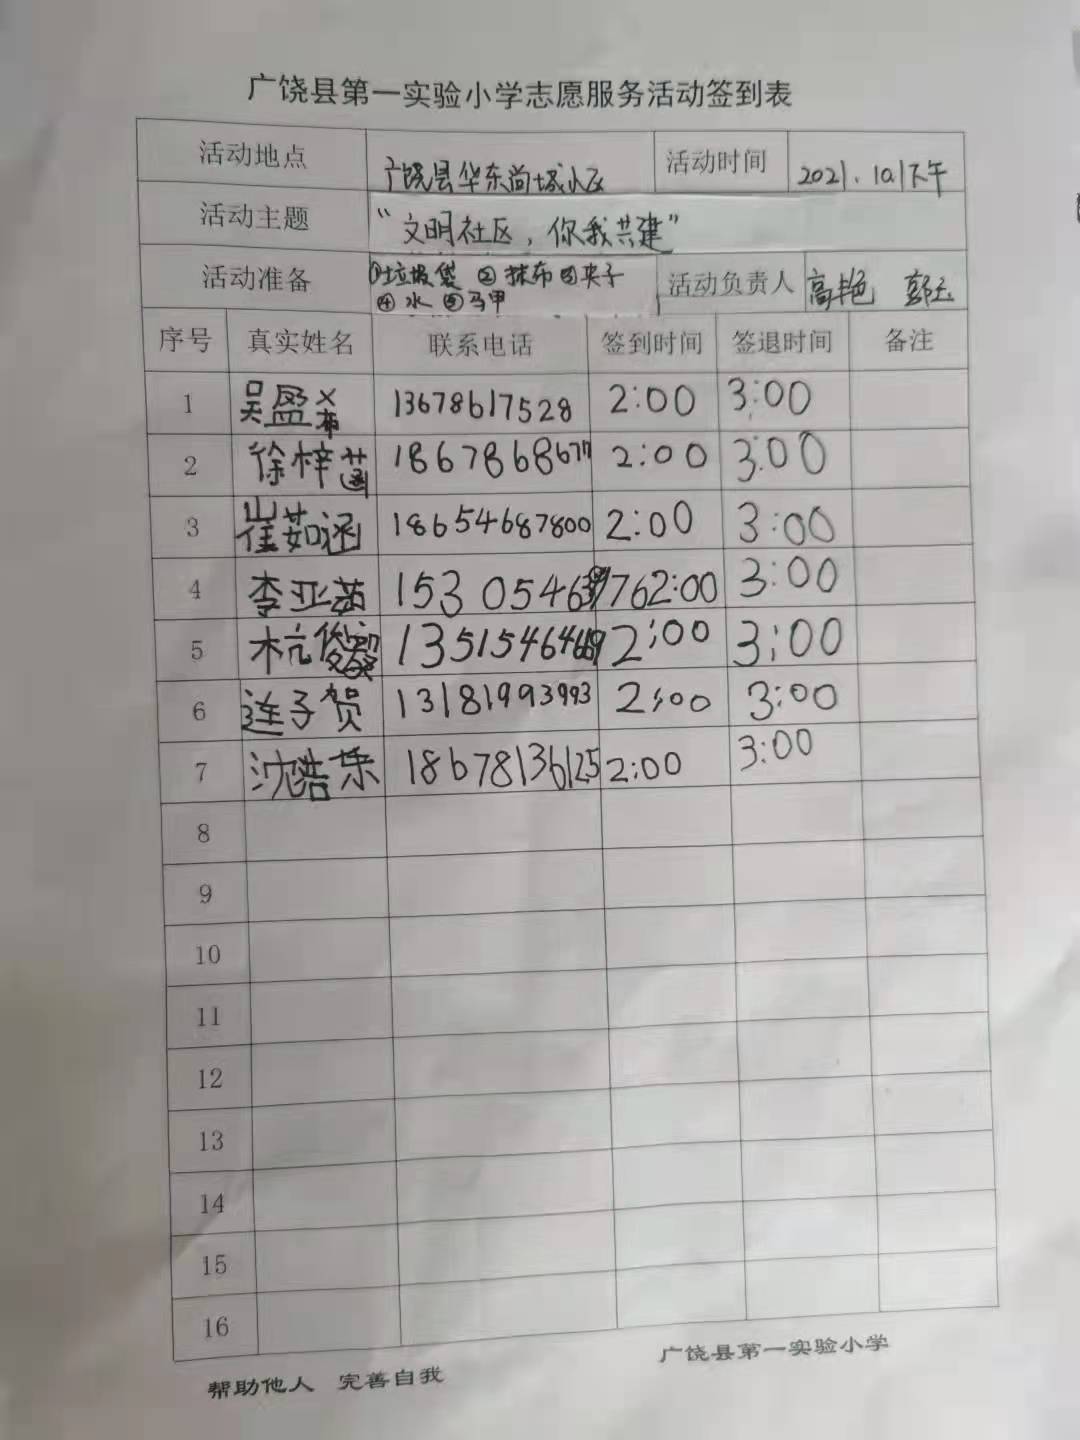 广饶县第一实验小学志愿服务活动签到表
活动地点 广饶县华东尚城小区 活动时间 2021.10.1下午
活动主题 “文明社区,你我共建”
活动准备 ①垃圾袋 ②抹布 ③夹子 活动负责人 高艳 郭玉
④水 ⑤马甲
序号 真实姓名 联系电话 签到时间 签退时间 备注
1 吴盈希 13678617528 2:00 3:00
2 徐梓菡 18678686 2:00 3:00
3 崔茹涵 18654687800 2:00 3:00
4 李亚茹 2:00 3:00
5 杭俊毅 2:00 3:00
6 连子贺 13181993993 2:00 3:00
7 沈浩乐 18678136125 2:00 3:00
8
9
10
11
12
13
14
15
16
帮助他人 完善自我 广饶县第一实验小学